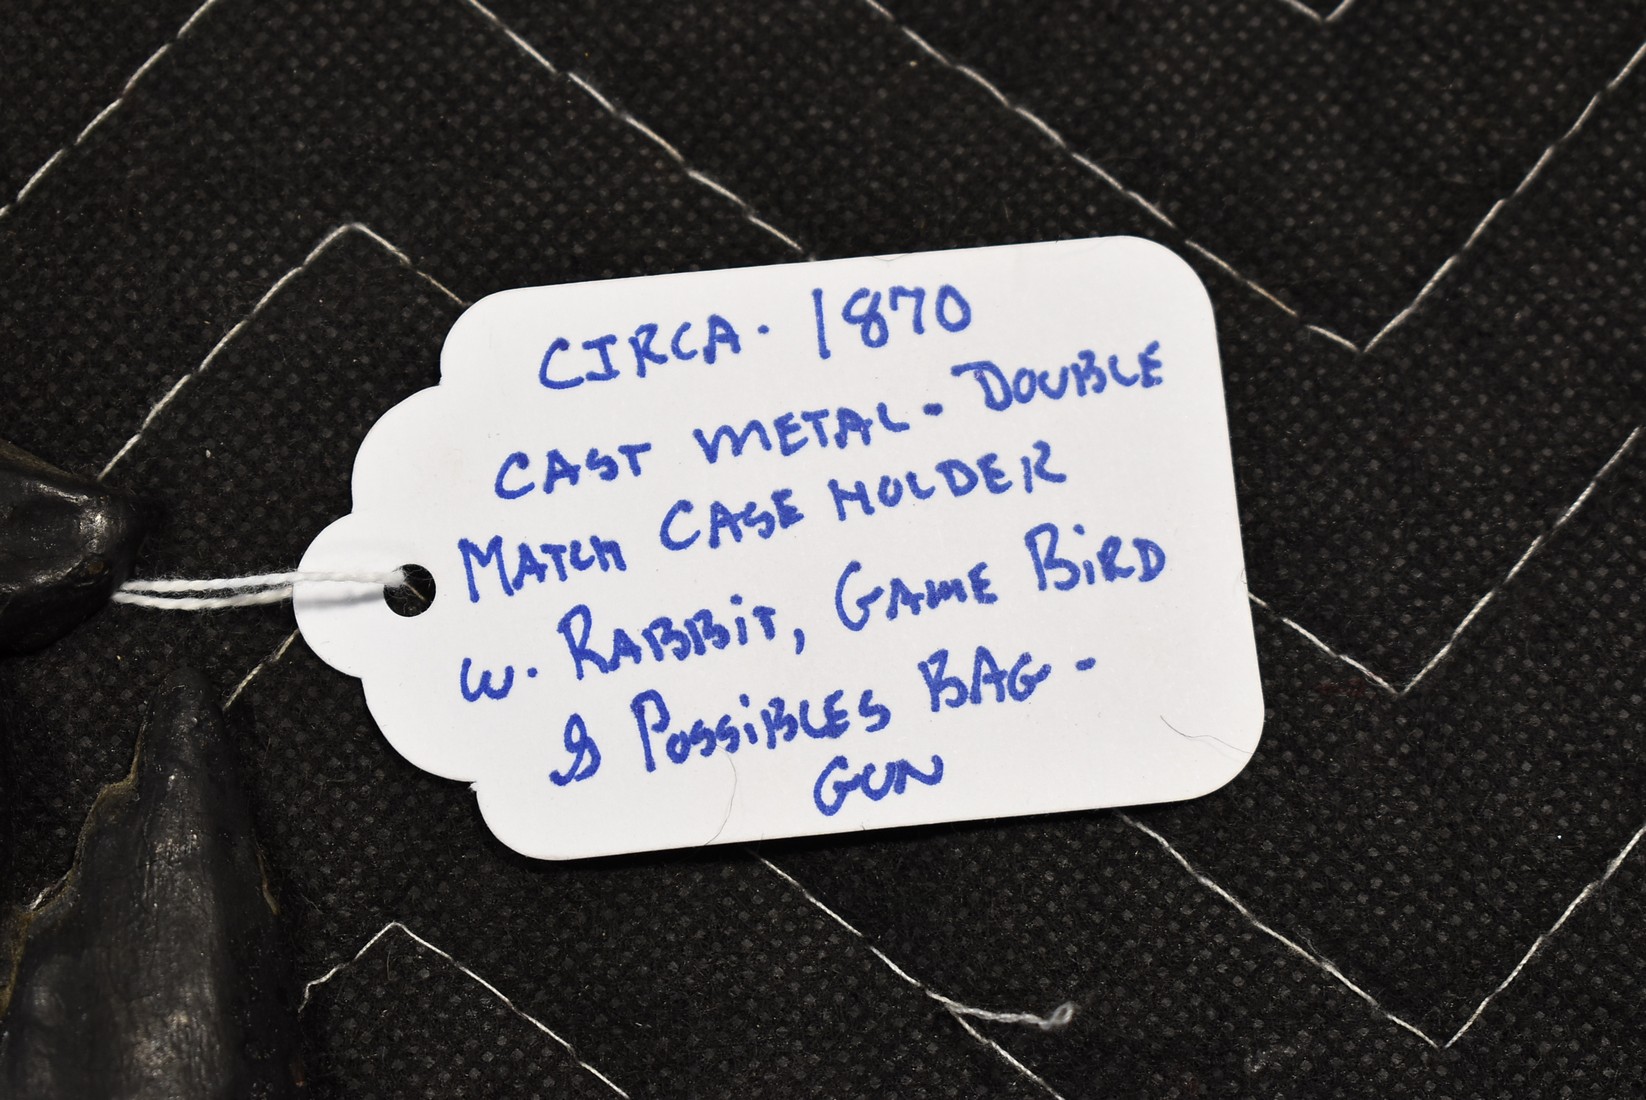 CIRCA. 1870
CAST METAL - DOUBLE
MATCH CASE HOLDER
W. RABBiT, GAME BiRD
& POSSiBLES BAG -
GUN